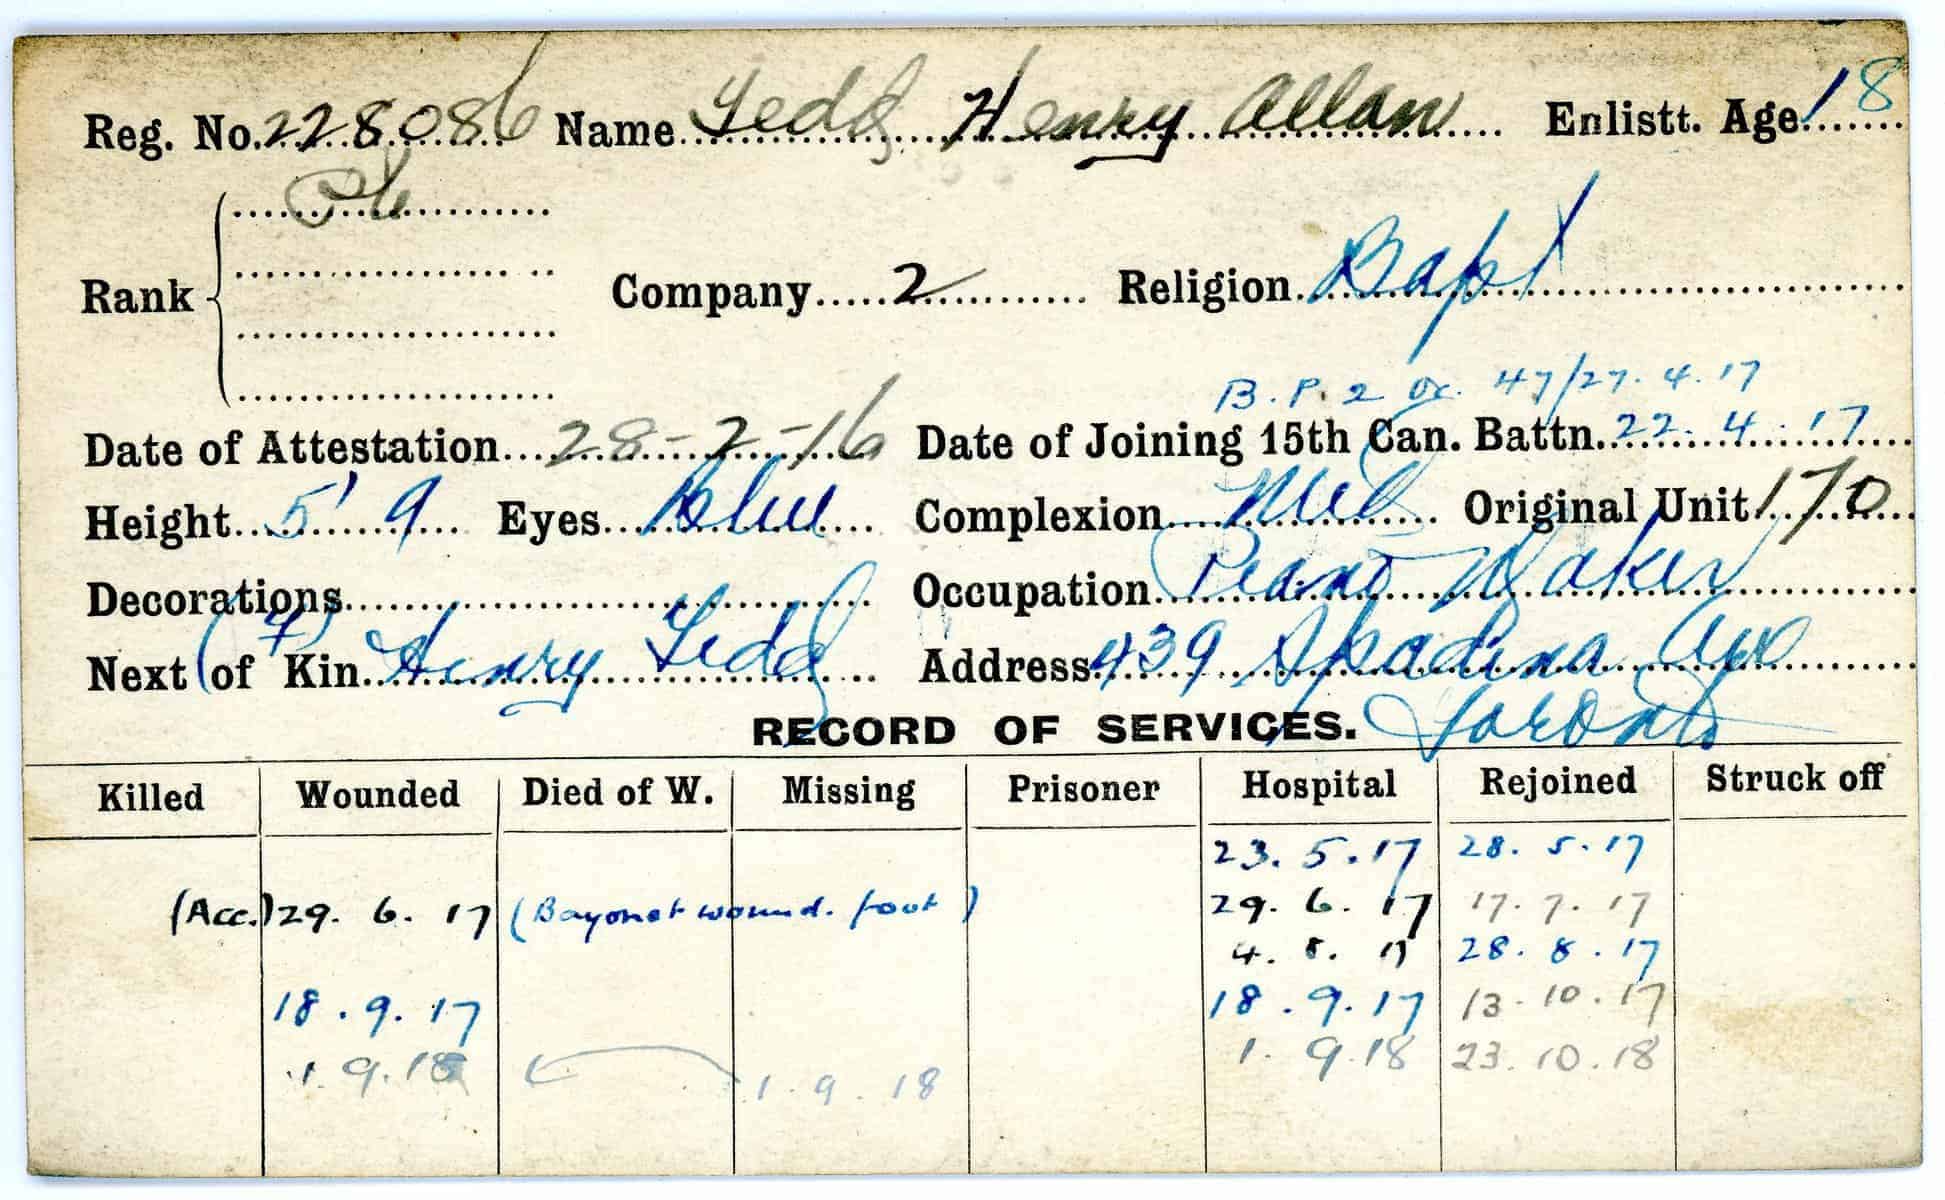 Reg. No. 228086 Name Tedd Henry Allan Enlistt. Age 18
Pte
Rank Company 2 Religion Bapt
B.P. 2 Or. 47/27.4.17
Date of Attestation 28-2-16 Date of Joining 15th Can. Battn. 22.4.17
Height 5' 9 Eyes blue Complexion Med Original Unit 170
Decorations Occupation Piano Maker
Next of Kin (F) Henry Tedd Address 439 Spadina Ave
RECORD OF SERVICES. Toronto
Killed Wounded Died of W. Missing Prisoner Hospital Rejoined Struck off
23.5.17 28.5.17
(Acc.) 29.6.17 (Bayonet wound. foot) 29.6.17 17.7.17
4.8.17 28.8.17
18.9.17 18.9.17 13.10.17
1.9.18 1.9.18 1.9.18 23.10.18